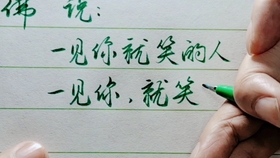 佛 说：
一见你就笑的人
一见你，就笑